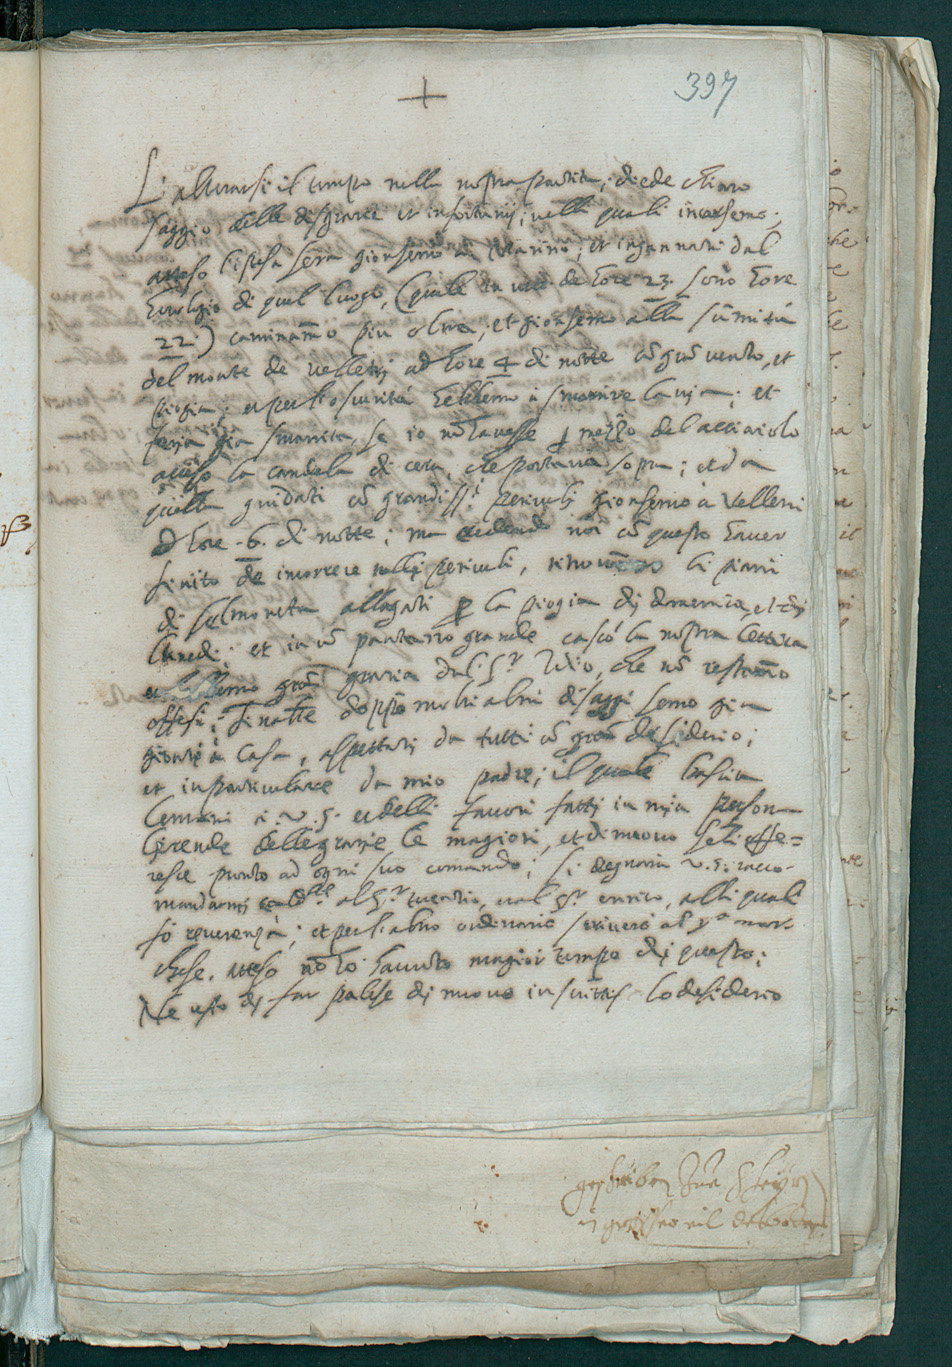 +
397
L'alterarsi il tempo nella nostra partita, diede chiaro
saggio delle disgratie et infortunij, nelli quali incorsemo;
atteso l'istesa sera gionsemo a Marino, et ingannati dal
horologio di quel luogo, (quale in vece de hore 23. sonò hore
22.) caminamo piu oltra, et gionsemo alla sumità
del monte de velletrj ad hore 4 di notte cõ grã vento, et
piogia; et per l'oscurità hebbemo a smarrire la via; et
seria gia smarrita, se io nõ havesse p mezzo del acciaiolo
acceso la candela di cera, che portava sopra; et da
quella guidati cõ grandiss.i pericoli gionsemo a Velletri
ad hore .6. di notte; ma credendo noi cõ questo haver
finito de incorrere nelli pericoli, li piani
di selmoneta allagati p la piogia dj domenica, et dj
lunedi; et in un pantano grande cascò la nostra lettica
et hebbemo grã gratia dal S.r Idio, che nõ restamo
offesi; Finalte doppo molti altri disaggi semo gia
gionti a Casa, aspettati da tutti cõ grã desiderio;
et in particulare da mio padre; il quale bascia
le mani a .v.S. et delli favori fattj in mia persona
le rende delle gratie le magiori, et di nuovo se li offe=
resce pronto ad ogni suo comando; si degnarà v.S. racco-
mandarmi al S.r , et al S.r enrico, alli quali
fo reverenza; et per l'altro ordinario scriverò al S.r mar-
chese. atteso nõ ho havuto magior tempo dj questo;
Ne resto dj far palese dj nuovo in scrittis lo desiderio
geschriben